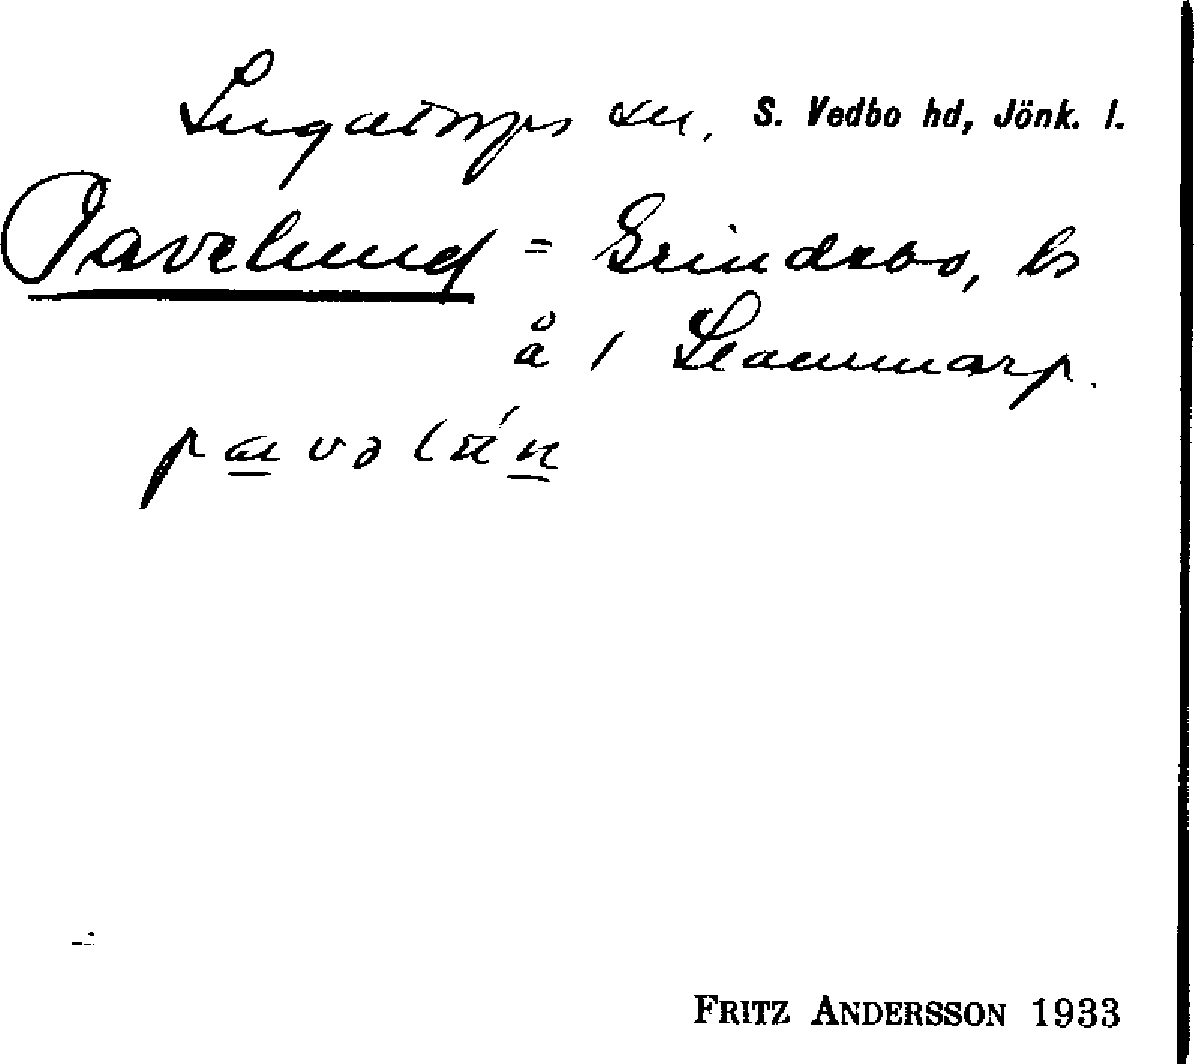 Ingatorps sn, S. Vedbo hd, Jönk. l.
Pavelund = Grindebo, bs
å 1 Stammarp.
pavəlún
FRITZ ANDERSSON 1933